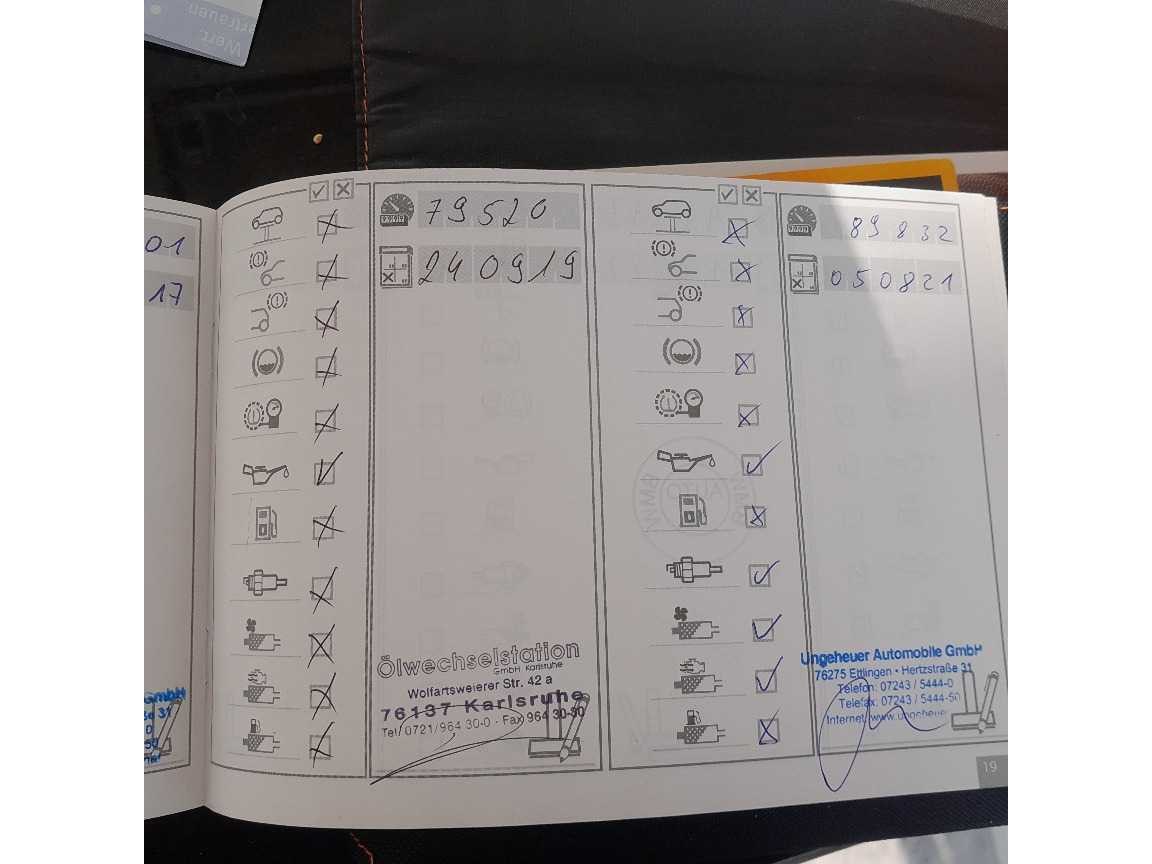 Wert.
ertrauen
01
17
GmbH
79520
240919
Ölwechselstation
GmbH Karlsruhe
Wolfartsweierer Str. 42 a
76137 Karlsruhe
Tel. 0721/964 30-0 - Fax 964 30-30
89832
050821
AUTO
BMW
Ungeheuer Automobile GmbH
76275 Ettlingen • Hertzstraße 31
Telefon: 07243 / 5444-0
Telefax: 07243 / 5444-50
Internet: www.ungeheue
19